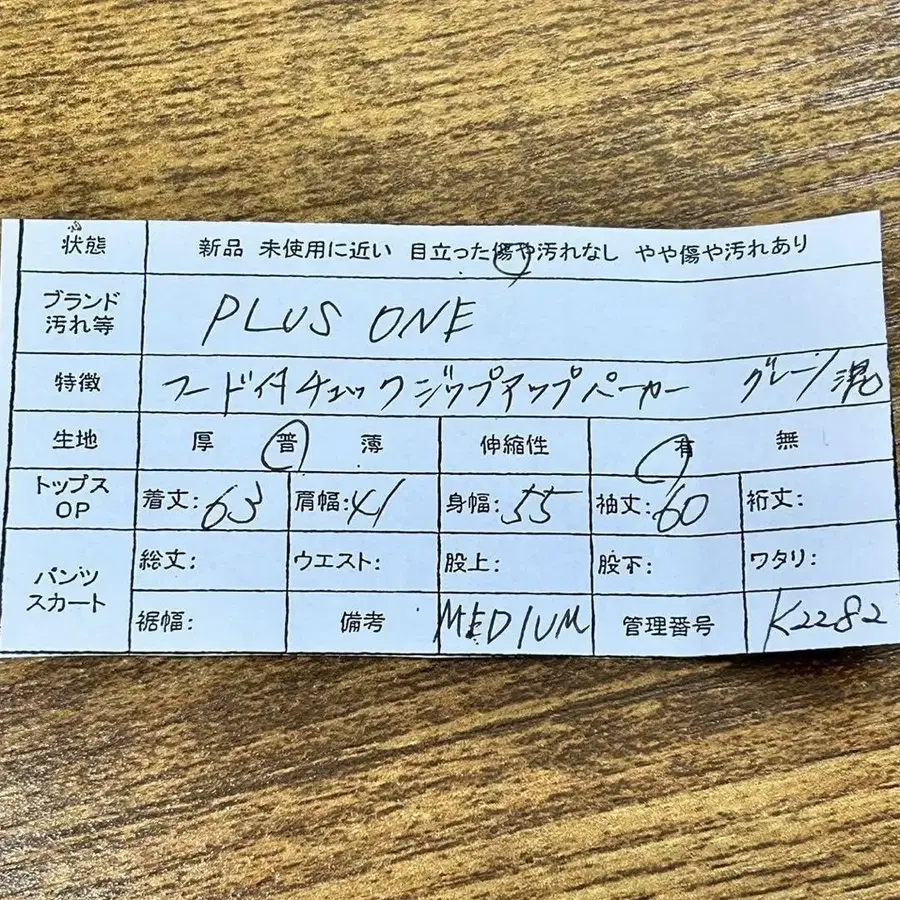 状態 新品 未使用に近い 目立った傷や汚れなし やや傷や汚れあり
ブランド
汚れ等
PLUS ONE
特徴 フード付チェックジップアップパーカー グレーン混
生地 厚 普 薄 伸縮性 有 無
トップス
OP
着丈:63 肩幅:41 身幅:55 袖丈:60 裄丈:
パンツ
スカート
総丈: ウエスト: 股上: 股下: ワタリ:
裾幅: 備考 MEDIUM 管理番号 K2282